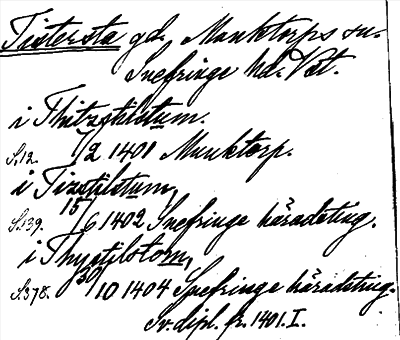 Tistersta gd, Munktorps sn.
Snefringe hd. Vst.
i Thitzstilstum.
S. 12. 7/2 1401 Munktorp.
i Tizstilstum,
S. 139. 15/6 1402 Snefringe häradsting.
i Thystilstom,
S. 378. 30/10 1404 Snefringe häradsting.
Sv. dipl. fr. 1401. I.